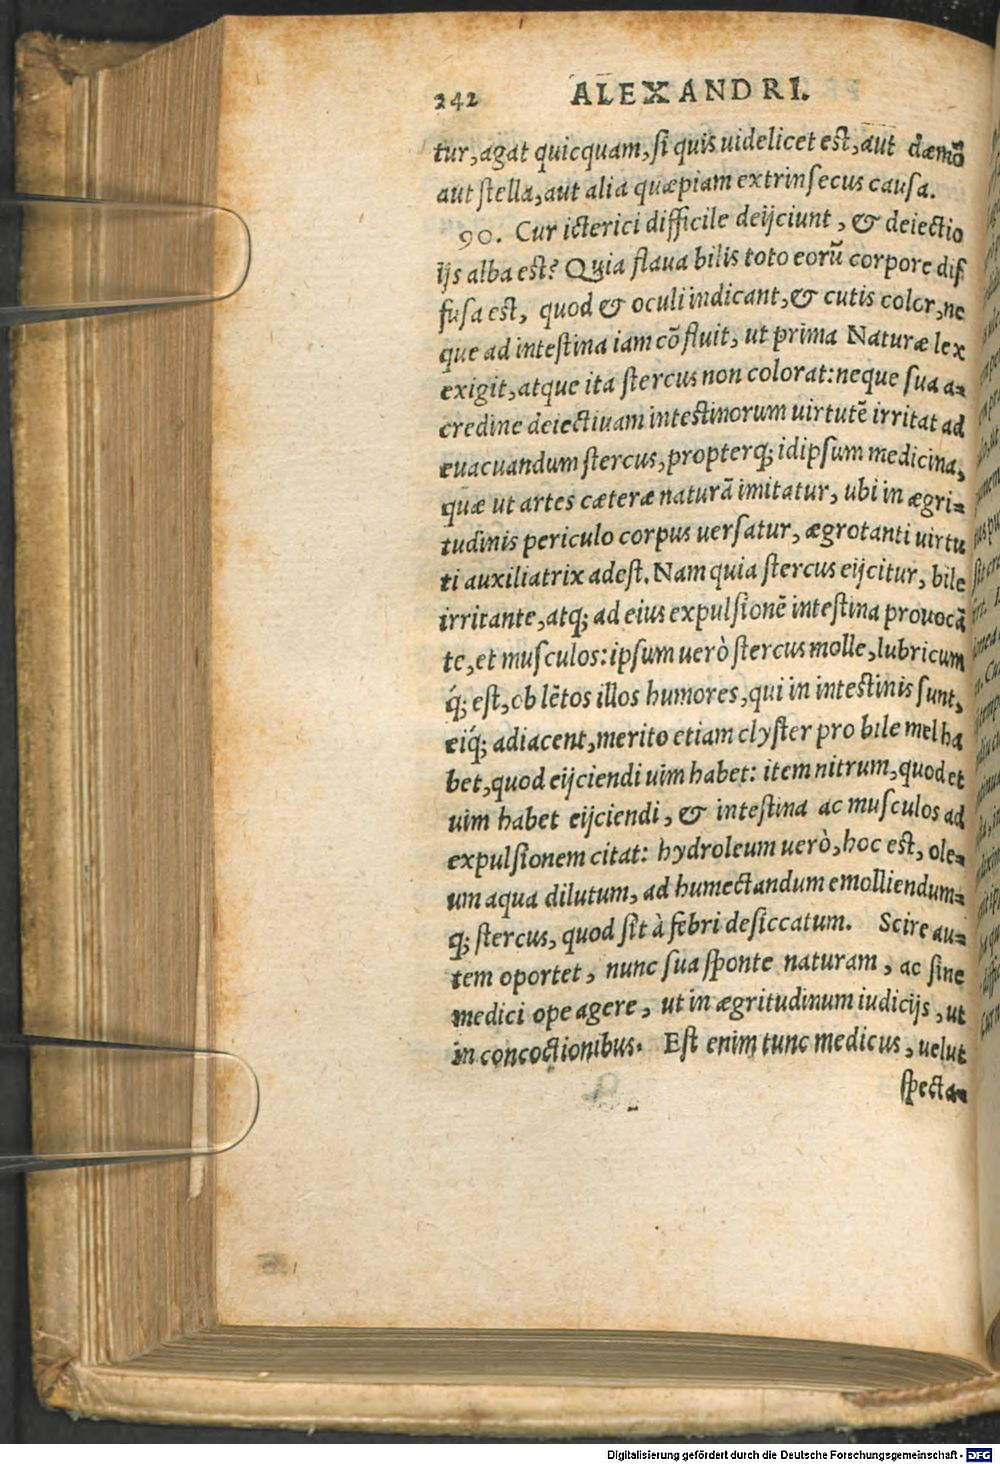 242 ALEXANDRI.
tur, agat quicquam, si quis uidelicet est, aut dæmō
aut stella, aut alia quæpiam extrinsecus causa.
90. Cur icterici difficile deijciunt, & deiectio
ijs alba est? Quia flaua bilis toto eorū corpore dif
fusa est, quod & oculi indicant, & cutis color, ne
que ad intestina iam cōfluit, ut prima Naturæ lex
exigit, atque ita stercus non colorat: neque sua a-
credine deiectiuam intestinorum uirtutē irritat ad
euacuandum stercus, propterq; idipsum medicina,
quæ ut artes cæteræ naturā imitatur, ubi in ægri-
tudinis periculo corpus uersatur, ægrotanti uirtu
ti auxiliatrix adest. Nam quia stercus eijcitur, bile
irritante, atq; ad eius expulsionē intestina prouocā
te, et musculos: ipsum uerò stercus molle, lubricum
q́; est, ob lētos illos humores, qui in intestinis sunt,
eiq́; adiacent, merito etiam clyster pro bile mel ha
bet, quod eijciendi uim habet: item nitrum, quod et
uim habet eijciendi, & intestina ac musculos ad
expulsionem citat: hydroleum uerò, hoc est, ole-
um aqua dilutum, ad humectandum emolliendum-
q; stercus, quod sit à febri desiccatum. Scire au-
tem oportet, nunc sua sponte naturam, ac sine
medici ope agere, ut in ægritudinum iudicijs, ut
in concoctionibus. Est enim tunc medicus, uelut
specta-
Digitalisierung gefördert durch die Deutsche Forschungsgemeinschaft - DFG